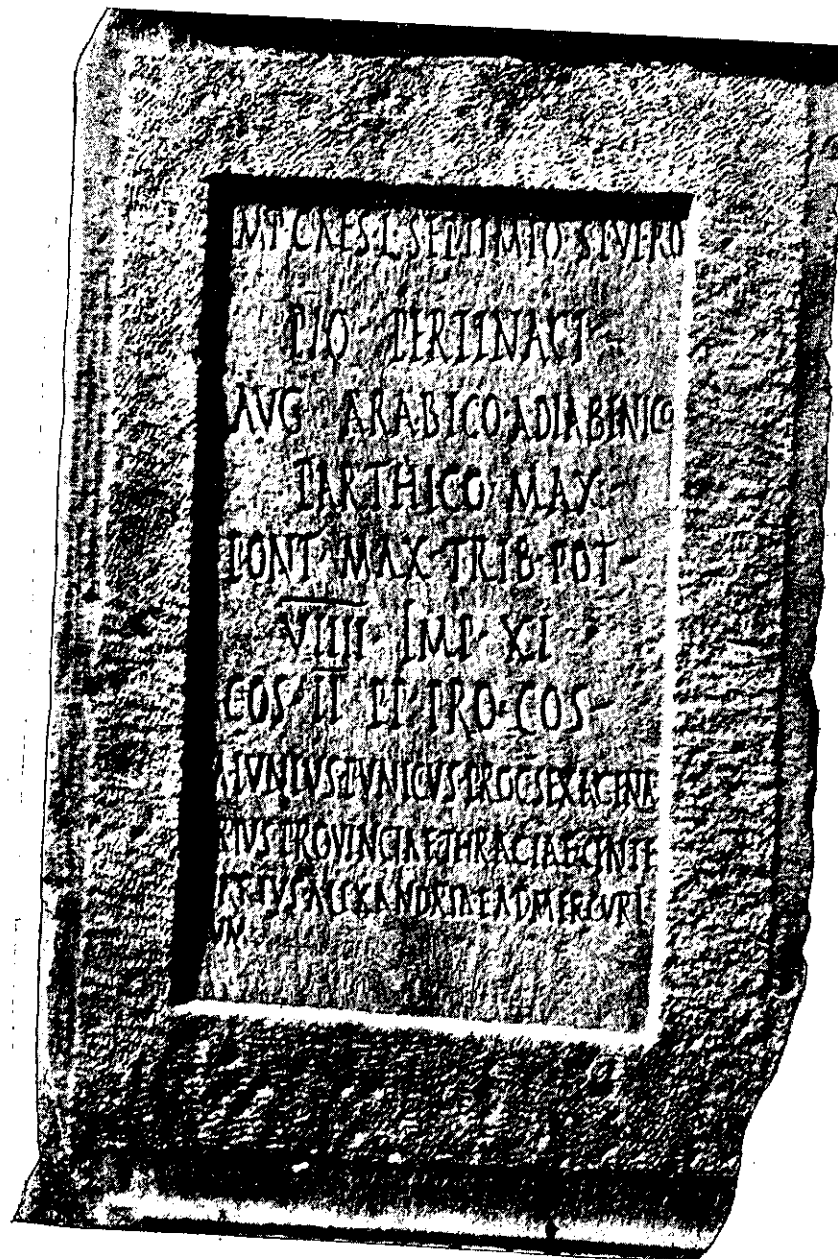 IMP·CAES·L·SEPTIMIO·SEVERO
PIO·PERTINACI
AVG·ARABICO·ADIABENICO
PARTHICO·MAX
PONT·MAX·TRIB·POT
VIIII·IMP·XI
COS·II·ET·PRO·COS
IVNIVS·PVNICVS·PROC·SEXAGENA
RIVS·PROVINCIAE·THRACIAE·CENTE
ALEXANDRIAE·AD·MERCVRI
VM